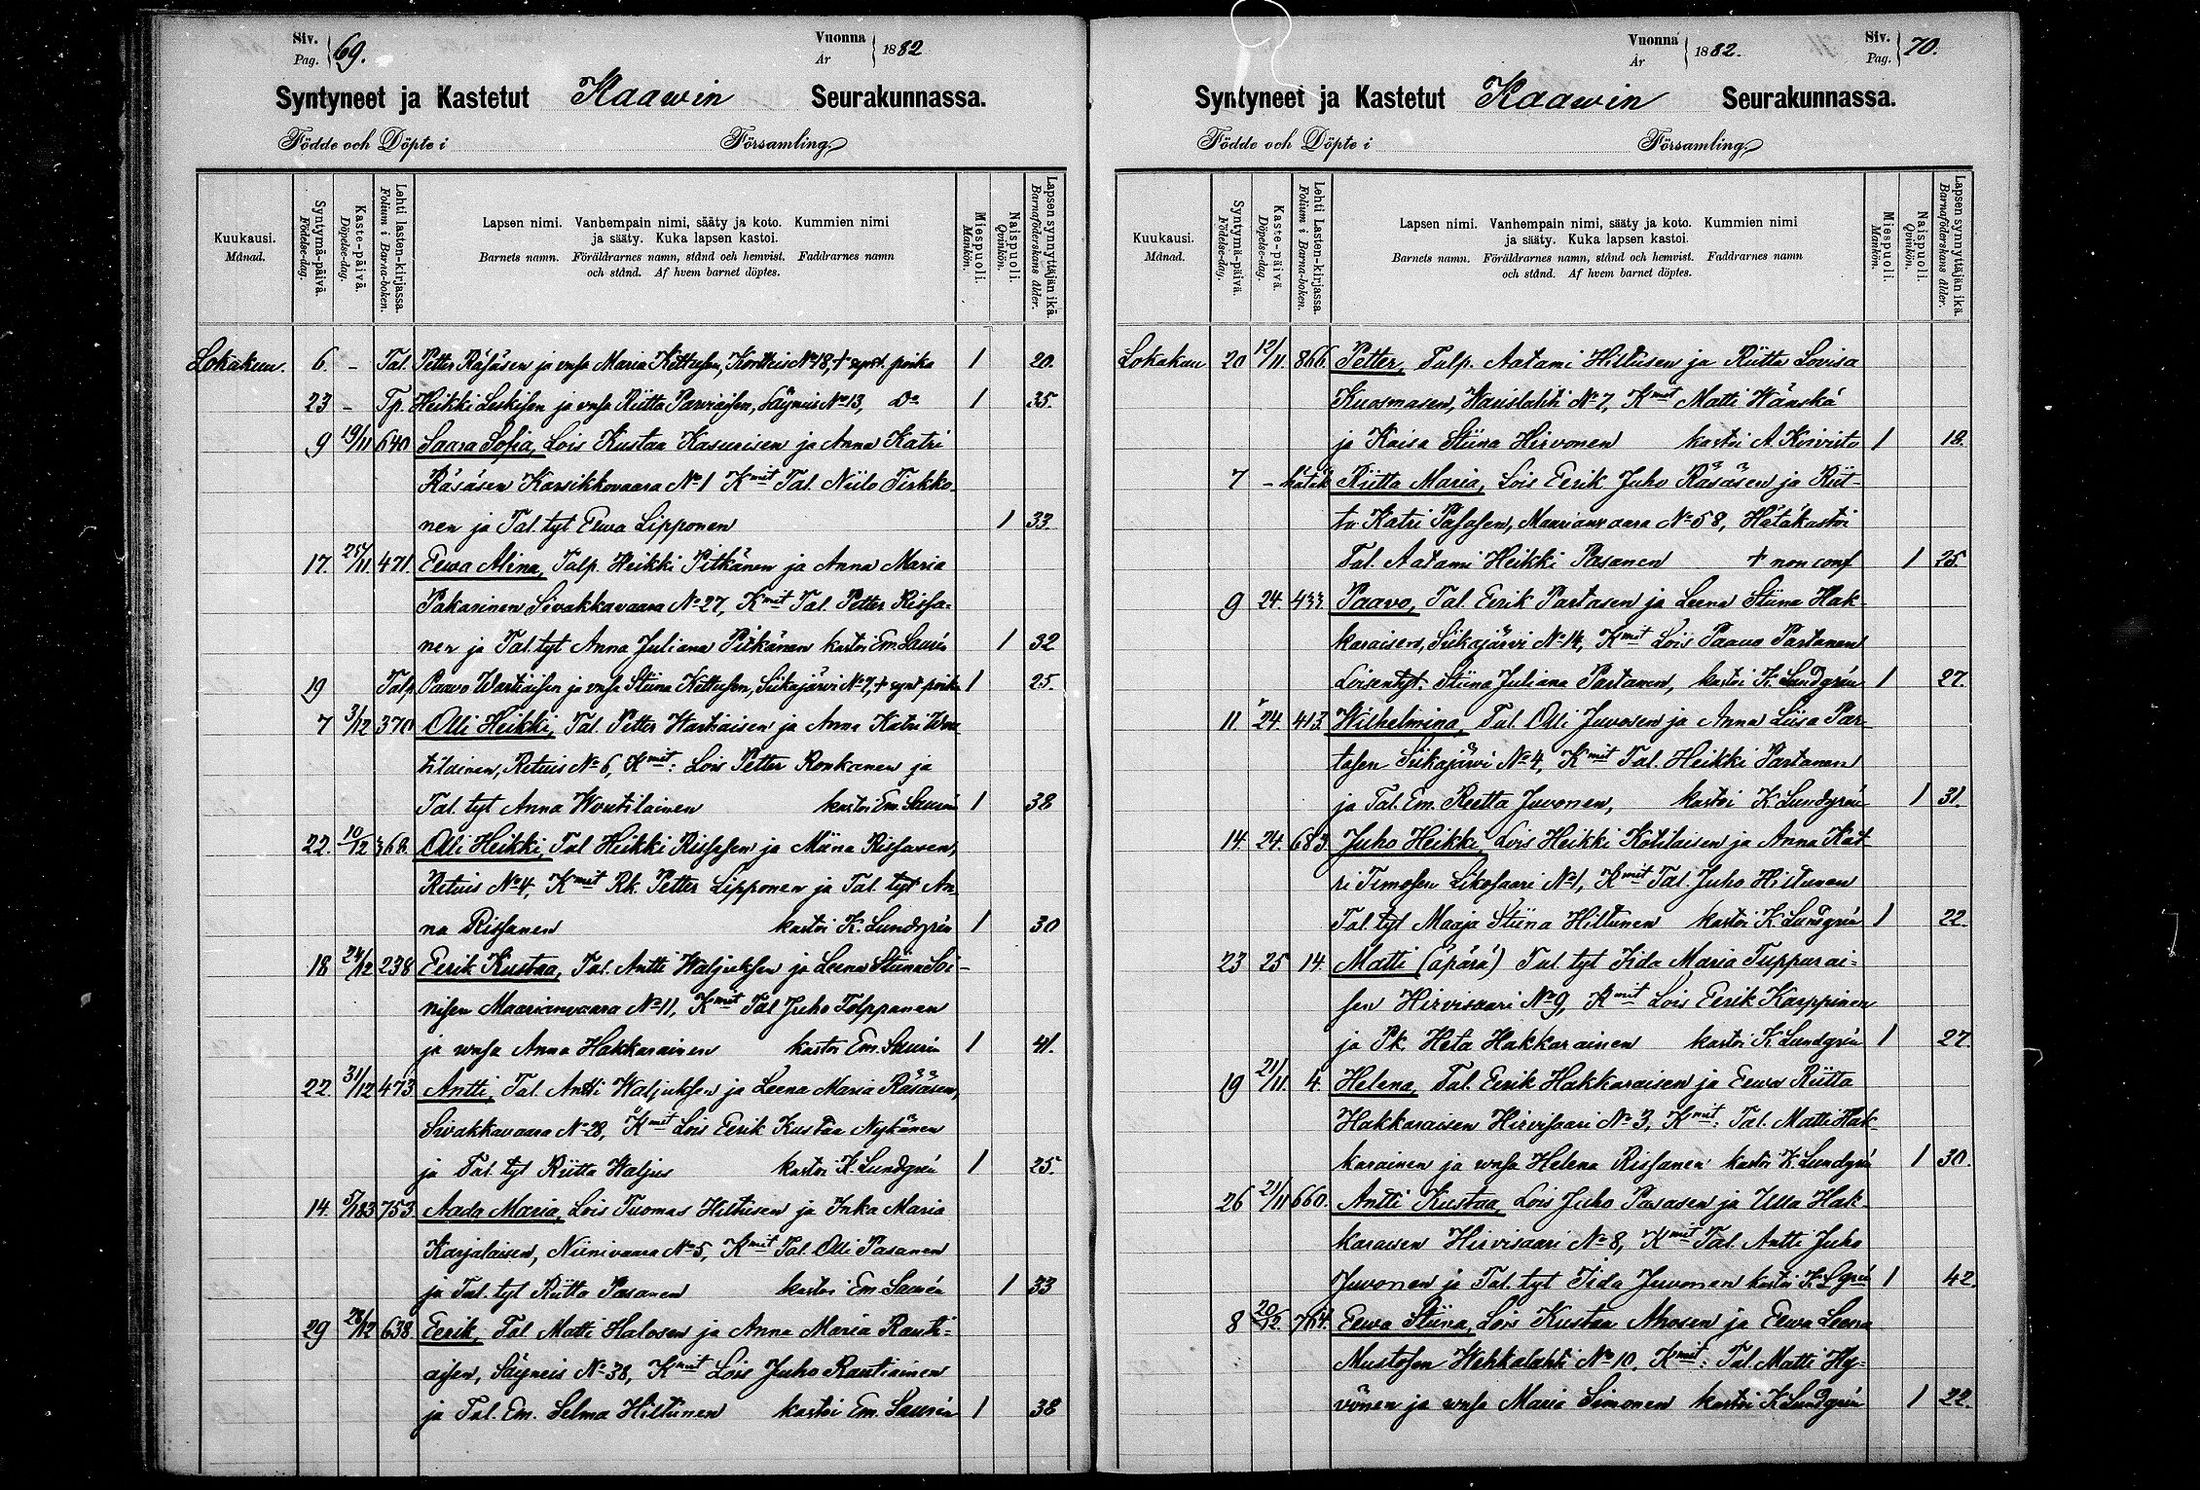 Siv. Pag. 69. Vuonna År 1882
Syntyneet ja Kastetut Kaawin Seurakunnassa.
Födde och Döpte i Församling
Kuukausi. Månad.
Syntymä-päivä. Födelse-dag.
Kaste-päivä. Döpelse-dag.
Lehti lasten-kirjassa. Folium i Barna-boken.
Lapsen nimi. Vanhempain nimi, sääty ja koto. Kummien nimi
ja sääty. Kuka lapsen kastoi.
Barnets namn. Föräldrarnes namn, stånd och hemvist. Faddrarnes namn
och stånd. Af hvem barnet döptes.
Miespuoli. Mankön.
Naispuoli. Qvinkön.
Lapsen synnyttäjän ikä. Barnaföderskans ålder.
Lokakuu. 6. - Tal. Petter Räsäsen ja vmsa Maria Kettusen, Kortteis No 18, + synt. poika 1 20.
23 - Tp. Heikki Leskisen ja vmsa Riitta Parviaisen, Säyneis No 13, Do 1 35.
9 19/11 640 Saara Sofia, Lois Kustaa Kasurisen ja Anna Katri
Räsäsen Karsikkovaara No 1 Kmit Tal. Niilo Tirkko-
nen ja Tal. tyt Eewa Lipponen 1 33.
17. 25/11. 471. Eewa Alina, Talp. Heikki Pitkänen ja Anna Maria
Pakarinen Sivakkavaara No 27, Kmit Tal. Petter Rissa-
nen ja Tal. tyt Anna Juliana Pitkänen kastoi Em. Saurén 1 32
19 Talp Paavo Wartiaisen ja vmsa Stiina Kettusen, Siikajärvi No 7, + synt poika 1 25.
7 3/12 370 Olli Heikki, Tal. Petter Wartiaisen ja Anna Katri Wou-
tilainen, Retuis No 6, Kmit: Lois Petter Ronkanen ja
Tal. tyt Anna Woutilainen kastoi Em. Saurén 1 38
22. 10/12 368. Olli Heikki, Tal Heikki Rissasen ja Miina Rissanen,
Retuis No 4, Kmit Rk. Petter Lipponen ja Tal. tyt An-
na Rissanen kastoi K. Lundgrén 1 30
18 24/12 238 Eerik Kustaa, Tal. Antti Waljuksen ja Leena Stiina Soi-
nisen Maarianvaara No 11, Kmit Tal Juho Tolppanen
ja vmsa Anna Hakkarainen kastoi Em. Saurén 1 41.
22. 31/12 473 Antti, Tal. Antti Waljuksen ja Leena Maria Räsäsen,
Sivakkavaara No 28, Kmit Lois Eerik Kustaa Nykänen
ja Tal. tyt Riitta Waljus kastoi K. Lundgrén 1 25.
14. 5/1 83 753 Aada Maria, Lois Tuomas Hiltusen ja Inka Maria
Karjalaisen, Niinivaara No 5, Kmit Tal. Olli Pasanen
ja Tal. tyt Riitta Pasanen kastoi Em. Saurén 1 33
29 28/12 638 Eerik, Tal Matti Halosen ja Anna Maria Rauti-
aisen, Säyneis No 38, Kmit Lois Juho Rautiainen
ja Tal. Em. Selma Hiltunen kastoi Em. Saurén 1 38
Vuonna År 1882. Siv. Pag. 70.
Syntyneet ja Kastetut Kaawin Seurakunnassa.
Födde och Döpte i Församling
Kuukausi. Månad.
Syntymä-päivä. Födelse-dag.
Kaste-päivä. Döpelse-dag.
Lehti Lasten-kirjassa. Folium i Barna-boken.
Lapsen nimi. Vanhempain nimi, sääty ja koto. Kummien nimi
ja sääty. Kuka lapsen kastoi.
Barnets namn. Föräldrarnes namn, stånd och hemvist. Faddrarnes namn
och stånd. Af hvem barnet döptes.
Miespuoli. Mankön.
Naispuoli. Qvinkön.
Lapsen synnyttäjän ikä. Barnaföderskans ålder.
Lokakuu 20 12/11. 866. Petter, Talp. Aatami Hiltusen ja Riitta Lovisa
Kuosmasen, Wauslahti No 7, Kmit Matti Wänskä
ja Kaisa Stiina Hirvonen kastoi A. Koivisto 1 18.
7 - hätäk Riitta Maria, Lois Eerik Juho Räsäsen ja Riit-
ta Katri Pasasen, Maarianvaara No 58, Hätäkastoi
Tal. Aatami Heikki Pasanen + non conf 1 25.
9 24. 433. Paavo, Tal. Eerik Partasen ja Leena Stiina Hak-
karaisen, Siikajärvi No 14, Kmit Lois Paavo Partanen
Loisentyt. Stiina Juliana Partanen, kastoi K. Lundgrén 1 27.
11. 24. 413. Wilhelmina, Tal. Olli Juvosen ja Anna Liisa Par-
tasen Siikajärvi No 4, Kmit Tal. Heikki Partanen
ja Tal. Em. Reetta Juvonen, kastoi K. Lundgrén 1 31.
14. 24. 683. Juho Heikki, Lois Heikki Kotilaisen ja Anna Kat-
ri Timosen Likosaari No 1, Kmit Tal. Juho Hiltunen
Tal. tyt Maaja Stiina Hiltunen kastoi K. Lundgrén 1 22.
23 25 14. Matti (äpärä) Tal. tyt Iida Maria Tuppurai-
sen Hirvisaari No 9, Kmit Lois Eerik Karppinen
ja Pk. Heta Hakkarainen kastoi K Lundgrén 1 27
19 21/11 4. Helena, Tal. Eerik Hakkaraisen ja Eewa Riitta
Hakkaraisen Hirvisaari No 3, Kmit: Tal. Matti Hak-
karainen ja vmsa Helena Rissanen kastoi K. Lundgrén 1 30.
26 21/11 660. Antti Kustaa, Lois Juho Pasasen ja Ulla Hak-
karaisen Hirvisaari No 8, Kmit Tal. Antti Juho
Juvonen ja Tal. tyt Iida Juvonen kastoi K. Lgrén 1 42.
8 20/12. 764. Eewa Stiina, Lois Kustaa Ahosen ja Eewa Leena
Mustosen Wehkalahti No 10, Kmit: Tal. Matti Hy-
vönen ja vmsa Maria Simonen kastoi K Lundgrén 1 22.